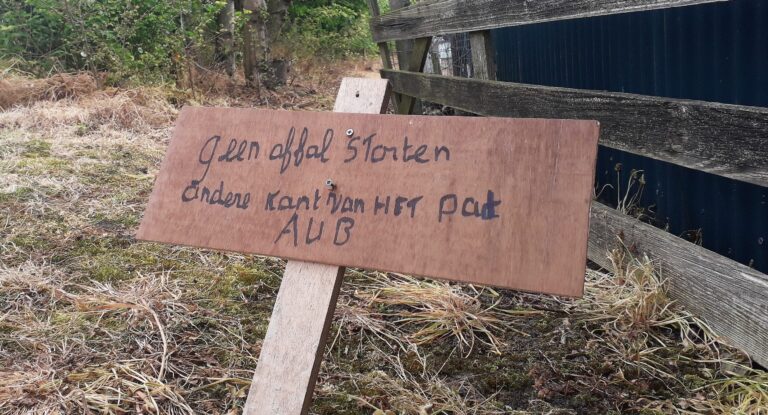 Geen affal storten
andere kant van HET pad
AUB